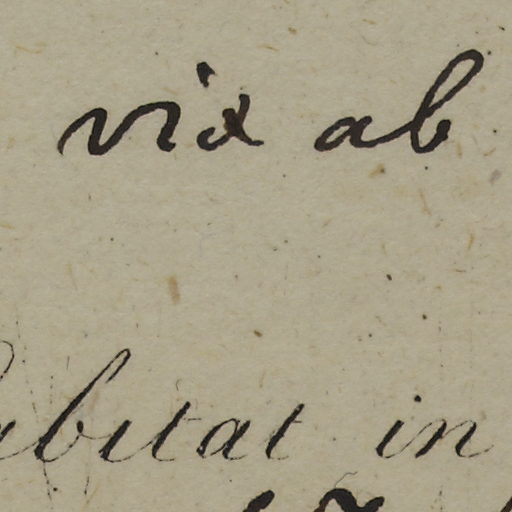 vix ab
abitat in